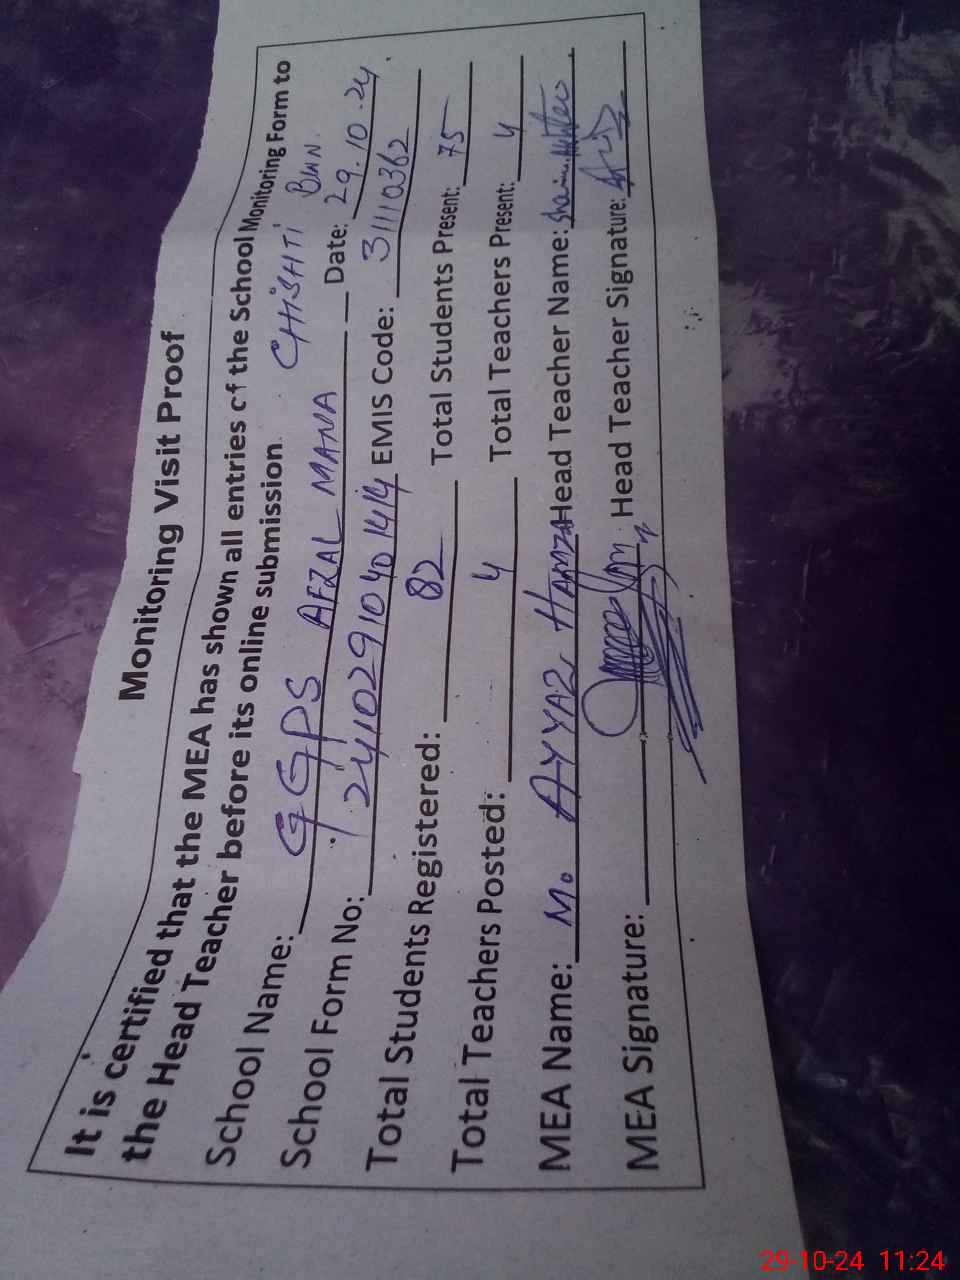 Monitoring Visit Proof
It is certified that the MEA has shown all entries of the School Monitoring Form to
the Head Teacher before its online submission.
School Name: GGPS AFZAL MANA CHISHTI BWN. Date: 29.10.24
School Form No: 24102910401414 EMIS Code: 31110362
Total Students Registered: 82 Total Students Present: 75
Total Teachers Posted: 4 Total Teachers Present: 4
MEA Name: M. AYYAZ HAMZA Head Teacher Name:
MEA Signature: Head Teacher Signature:
29-10-24 11:24